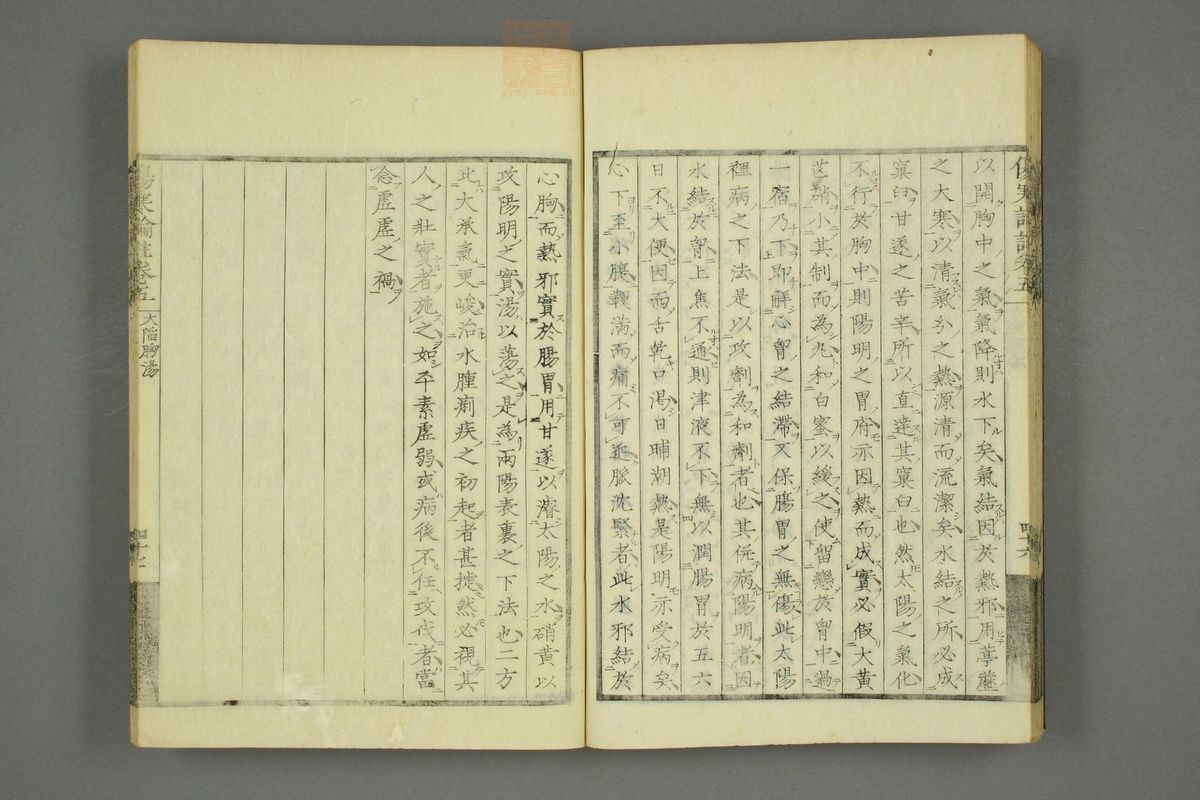 以開胸中之氣氣降則水下矣氣結因於熱邪用葶藶
之大寒以清氣分之熱源清而流潔矣水結之所必成
窠臼甘遂之苦辛所以直達其窠臼也然太陽之氣化
不行於胸中則陽明之胃府亦因熱而成實必假大黃
芒硝小其制而為丸和白蜜以緩之使留戀於胷中過
一宿乃下即解心胷之結滯又保腸胃之無傷此太陽
裡病之下法是以攻劑為和劑者也其併病陽明者因
水結於胷上焦不通則津液不下無以潤腸胃於五六
日不大便因而舌乾口渴日晡潮熱是陽明亦受病矣
心下至小腹鞕滿而痛不可近脈沈緊者此水邪結於
四十六
心胸而熱邪實於腸胃用甘遂以濬太陽之水硝黃以
攻陽明之實湯以蕩之是為兩陽表裏之下法也二方
比大承氣更峻治水腫痢疾之初起者甚捷然必視其
人之壯實者施之如平素虛弱或病後不任攻伐者當
念虛虛之禍
傷寒論註卷五
大陷胸湯
四十七